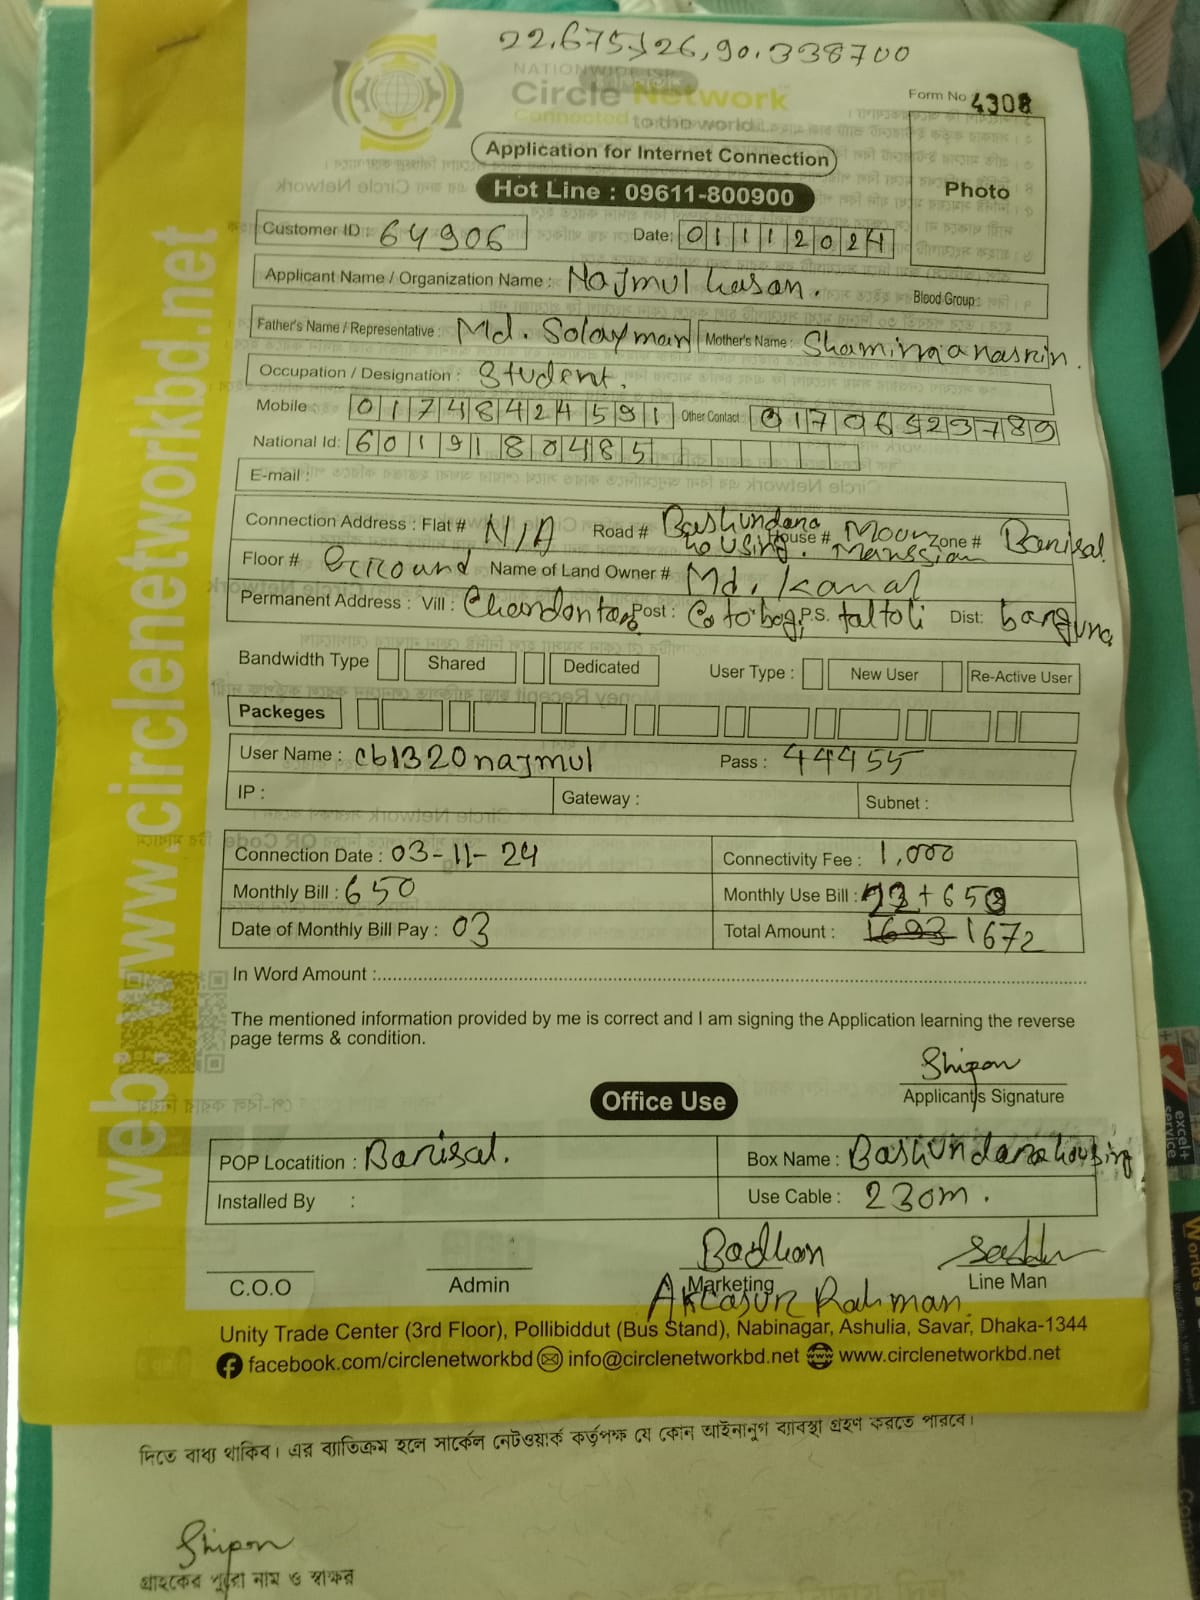 22.675526,90.338700
NATIONWIDE ISP
Circle Network
Connected to the world...
Form No 4308
Application for Internet Connection
Photo
Hot Line : 09611-800900
Customer ID : 64906
Date: 01112024
Applicant Name / Organization Name : Najmul hasan.
Blood Group :
Father's Name / Representative : Md. Solayman
Mother's Name : Shamima nasrin.
Occupation / Designation : Student.
Mobile : 01748424591
Other Contact : 01706523789
National Id: 6019180485
E-mail :
Connection Address : Flat # N/A Road # Bashundara housing. House # Moon Manssion Zone # Barisal
Floor # Ground Name of Land Owner # Md. Kamal
Permanent Address : Vill : Post : P.S. taltoli Dist: barguna
Bandwidth Type Shared Dedicated User Type : New User Re-Active User
Packeges
User Name : cb1320najmul
Pass : 44455
IP :
Gateway :
Subnet :
Connection Date : 03-11-24
Connectivity Fee : 1,000
Monthly Bill : 650
Monthly Use Bill : + 650
Date of Monthly Bill Pay : 03
Total Amount : 1693 1672
In Word Amount :
The mentioned information provided by me is correct and I am signing the Application learning the reverse
page terms & condition.
Shipon
Applicant's Signature
Office Use
POP Locatition : Barisal.
Box Name : Bashundara housing
Installed By :
Use Cable : 230m.
C.O.O
Admin
Badhan
Marketing
Line Man
Rahman
web: www.circlenetworkbd.net
Unity Trade Center (3rd Floor), Pollibiddut (Bus Stand), Nabinagar, Ashulia, Savar, Dhaka-1344
facebook.com/circlenetworkbd info@circlenetworkbd.net www.circlenetworkbd.net
দিতে বাধ্য থাকিব। এর ব্যতিক্রম হলে সার্কেল নেটওয়ার্ক কর্তৃপক্ষ যে কোন আইনানুগ ব্যাবস্থা গ্রহণ করতে পারবে।
Shipon
গ্রাহকের পুরো নাম ও স্বাক্ষর
excel+
service